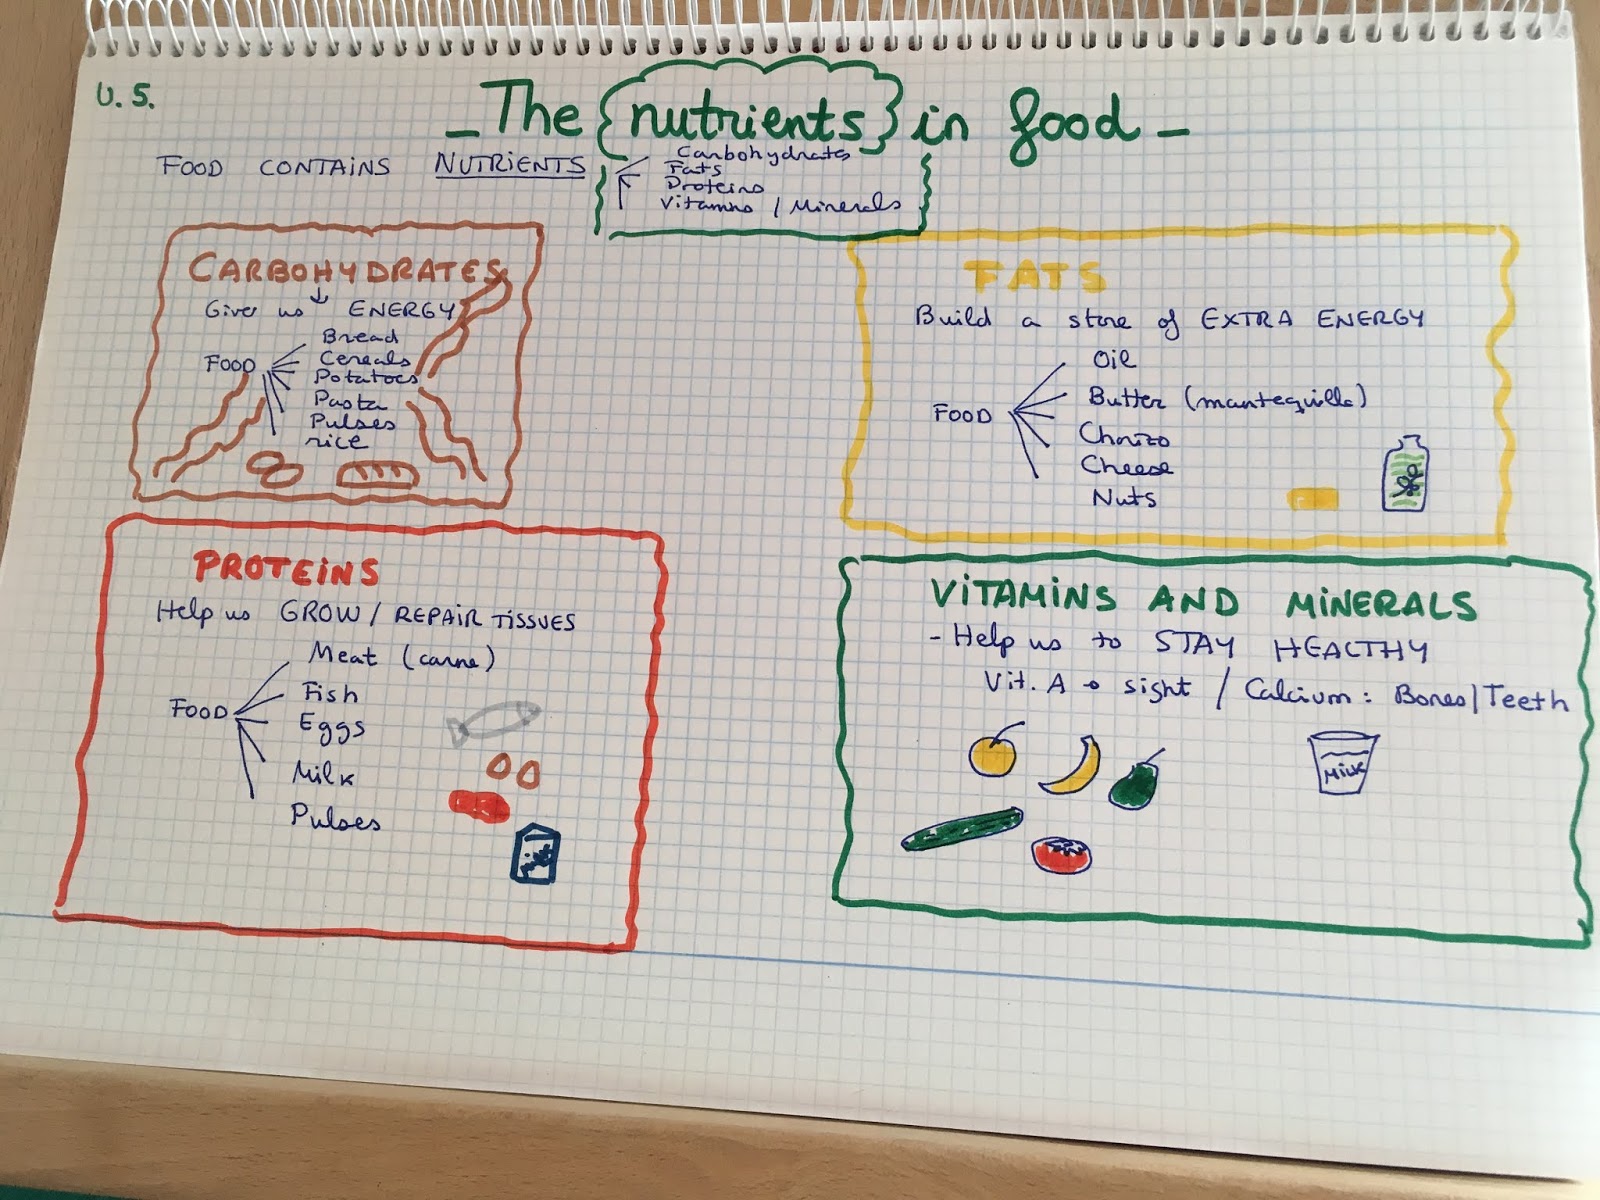 U. 5.
- The nutrients in food -
FOOD CONTAINS NUTRIENTS
Carbohydrates
Fats
Proteins
Vitamins / Minerals
CARBOHYDRATES
Gives us ENERGY
FOOD
Bread
Cereals
Potatoes
Pasta
Pulses
rice
FATS
Build a store of EXTRA ENERGY
FOOD
Oil
Butter (mantequilla)
Chorizo
Cheese
Nuts
PROTEINS
Help us GROW / REPAIR TISSUES
FOOD
Meat (carne)
Fish
Eggs
Milk
Pulses
VITAMINS AND MINERALS
- Help us to STAY HEALTHY
Vit. A → sight / Calcium: Bones/Teeth
MILK